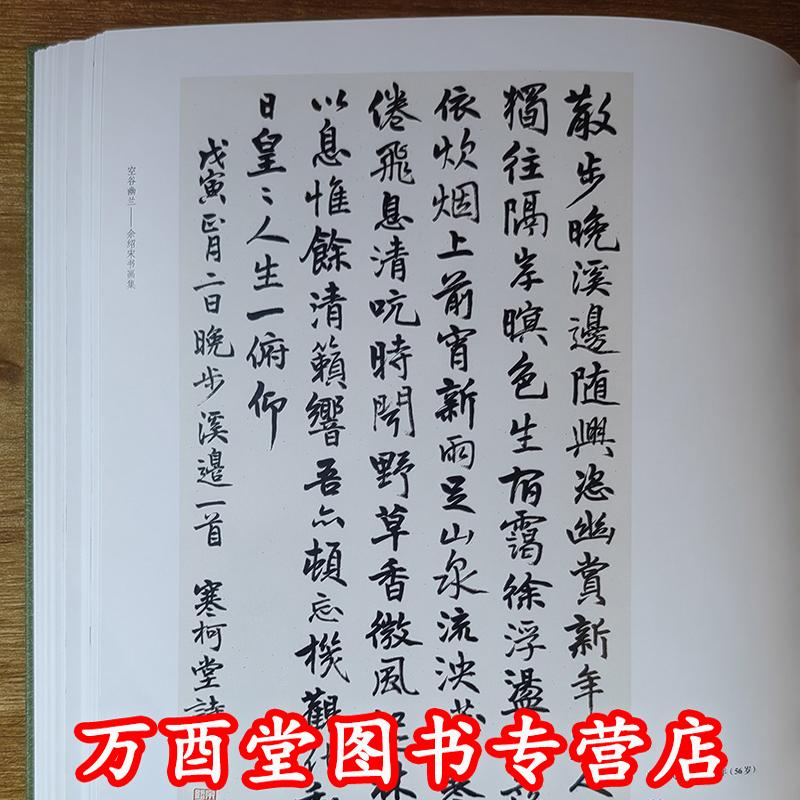 散步晚溪邊随興恣幽賞新年 人
獨往隔岸暝色生宿靄徐浮盪
依炊烟上前宵新雨足山泉流泱
倦飛息清吭時聞野草香微風
以息惟餘清籟響吾亦頓忘機觀
日皇〻人生一俯仰
戊寅正月二日晚步溪邊一首 寒柯堂詩
空谷幽兰——余绍宋书画集
(56岁)
万酉堂图书专营店